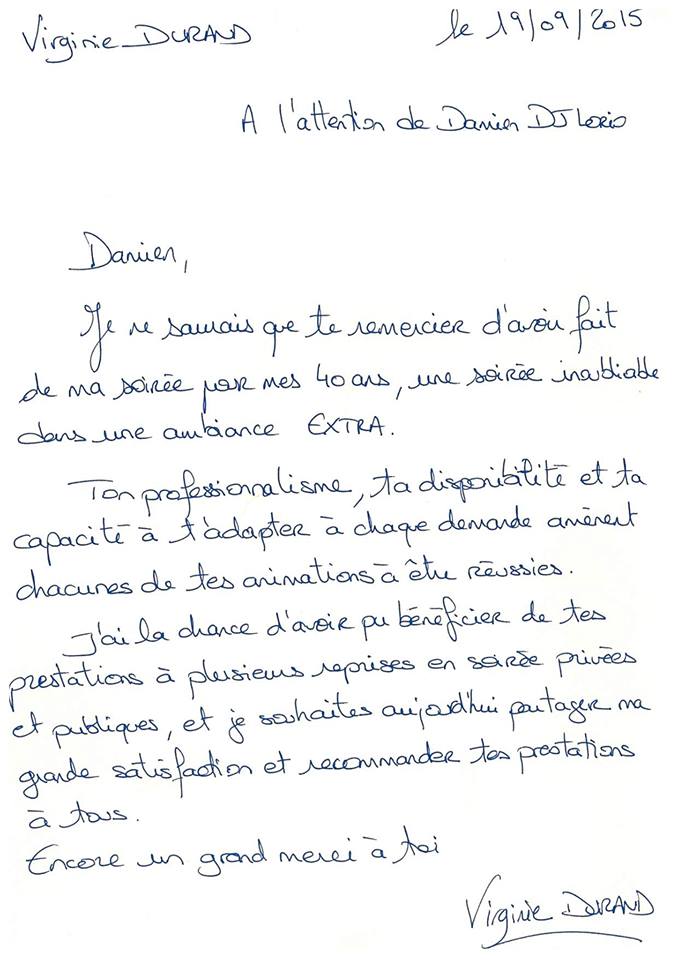 Virginie DURAND
le 19/09/2015
A l'attention de Damien DJ Lorio
Damien,
Je ne saurais que te remercier d'avoir fait
de ma soirée pour mes 40 ans, une soirée inoubliable
dans une ambiance EXTRA.
Ton professionnalisme, ta disponibilité et ta
capacité à t'adapter à chaque demande amènent
chacunes de tes animations à être réussies.
J'ai la chance d'avoir pu bénéficier de tes
prestations à plusieurs reprises en soirée privées
et publiques, et je souhaites aujourd'hui partager ma
grande satisfaction et recommander tes prestations
à tous.
Encore un grand merci à toi
Virginie DURAND